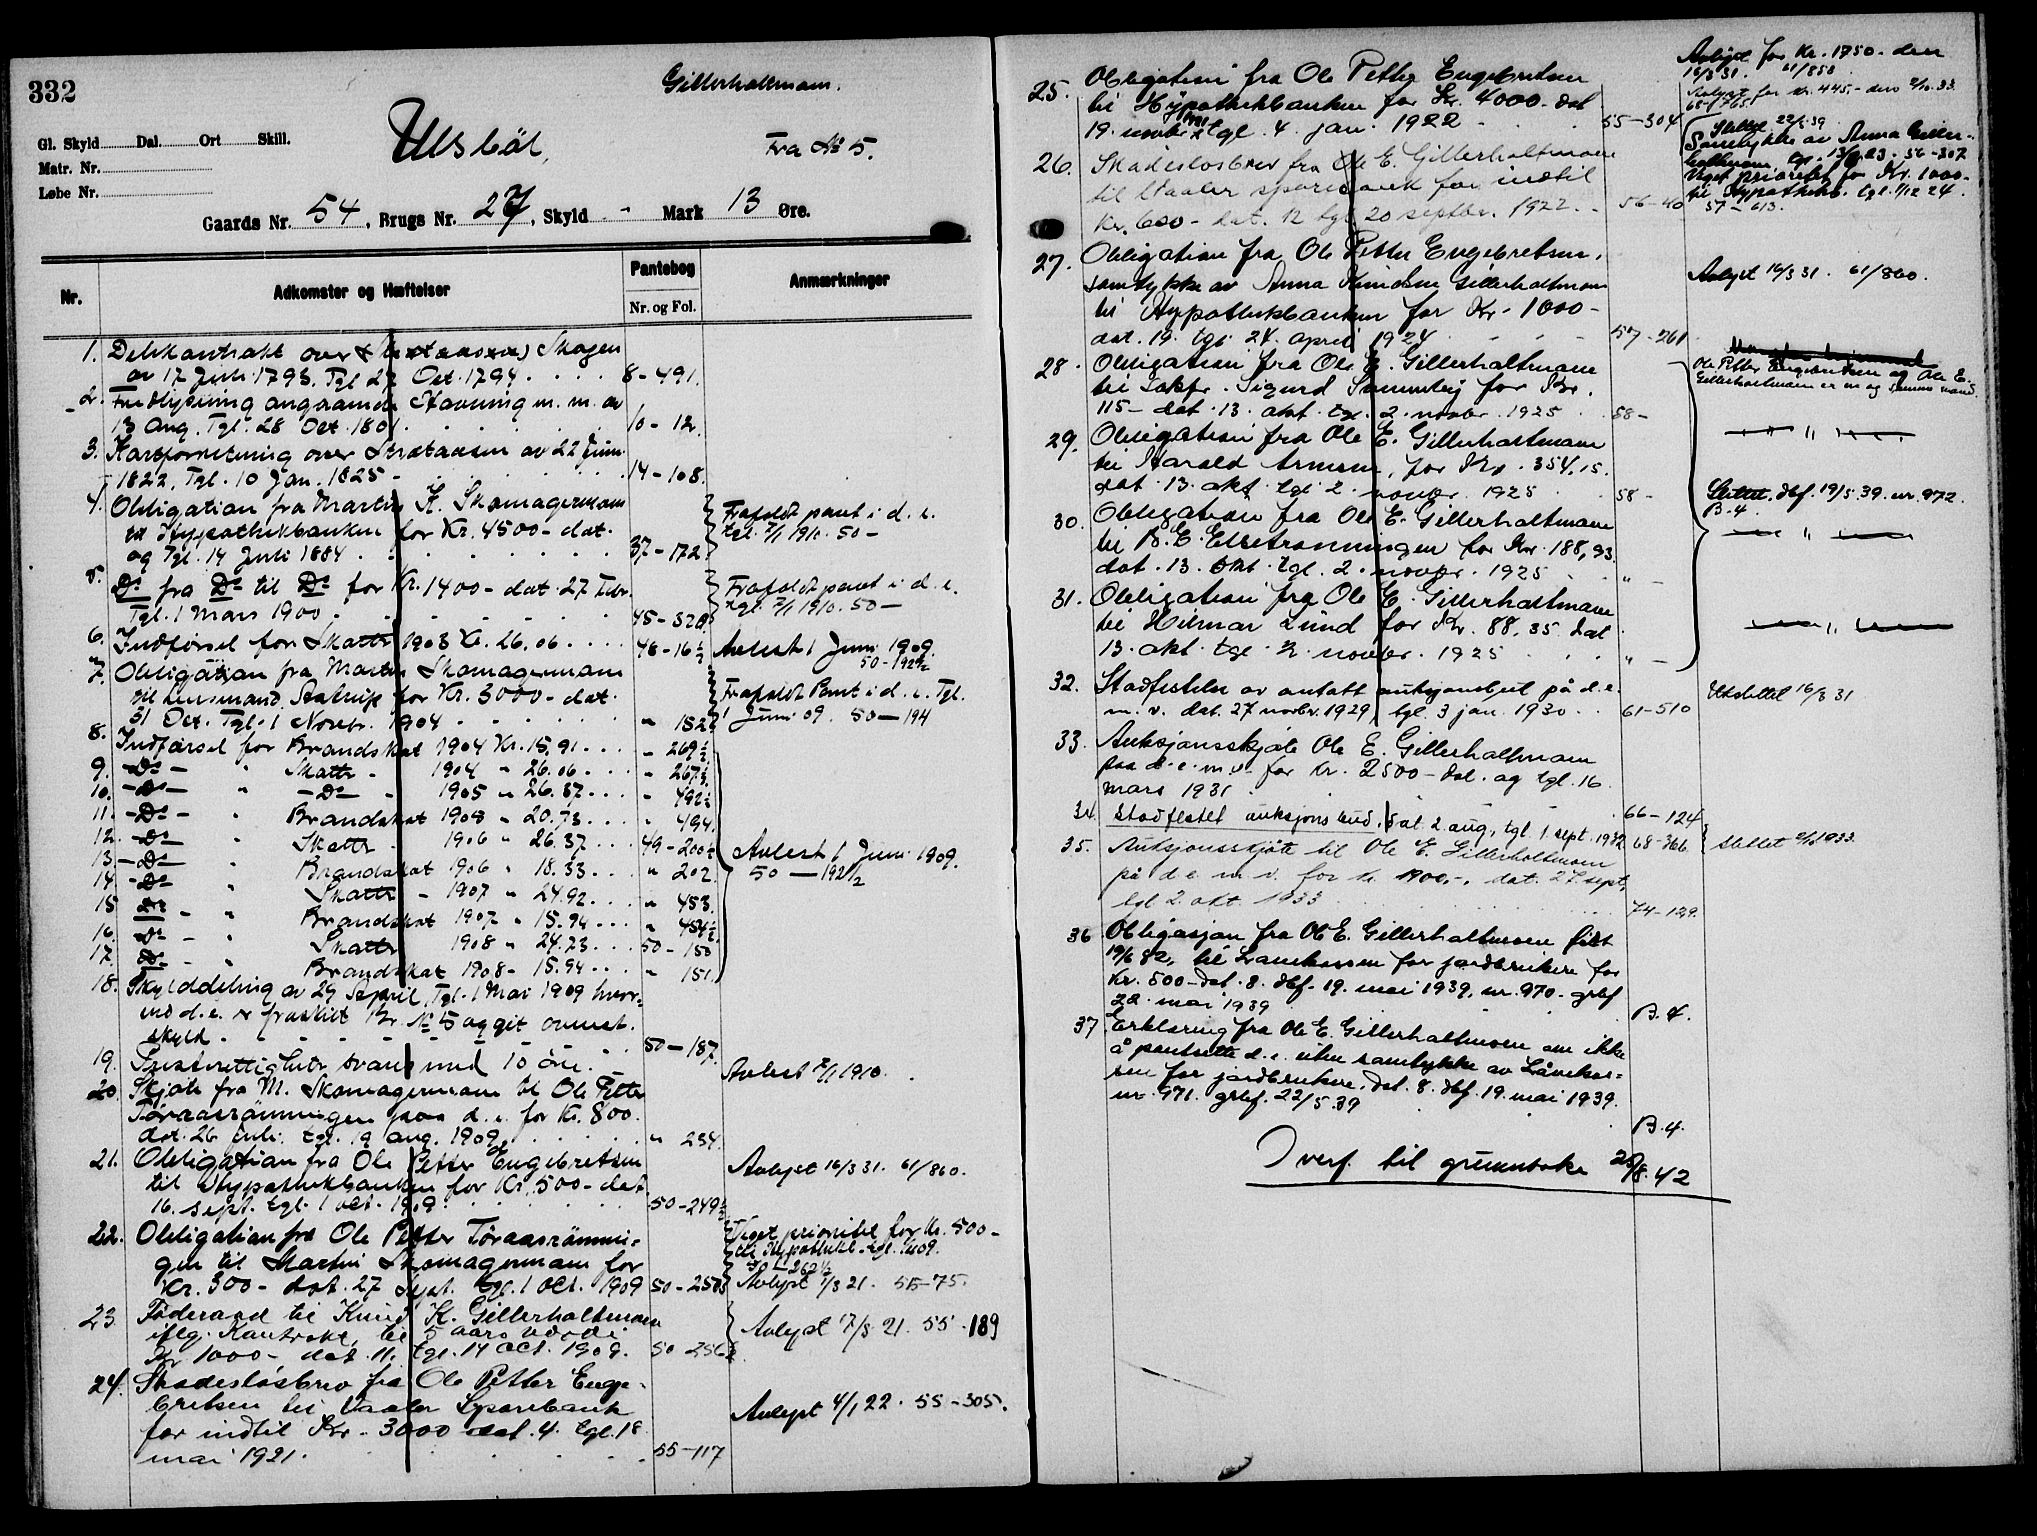 332
Gillerholtmoen.
Gl. Skyld Dal. Ort Skill.
Matr. Nr.
Løbe Nr.
Ulsböl,
Fra № 5.
Gaards Nr. 54, Brugs Nr. 27, Skyld - Mark 13 Øre.
Nr.
Adkomster og Hæftelser
Pantebog
Nr. og Fol.
Anmærkninger
1. Delekontrakt over Skogen
av 17 Juli 1793. Tgl 27 Oct. 1794 8-491.
2. Fredlysning angaaende Havning m. m. av
13 Aug. Tgl. 28 Oct. 1801. 10-12.
3. Kartforretning over av 22 Juni
1822, Tgl. 10 Jan. 1825 14-108.
4. Obligation fra Martin K. Skomagermoen
til Hypothekbanken for Kr. 4500- dat.
og Tgl. 14 Juli 1884 37-172.
Frafaldt pant i d. e.
tgl. 7/1 1910. 50-
5. Do fra Do til Do for Kr. 1400- dat. 27 Febr.
Tgl. 1 Mars 1900 45-320
Frafaldt pant i d. e.
tgl. 7/1 1910. 50-
6. Indførsel for Skatte 1903 Kr. 26.06 48-16½
Avlest 1 Juni 1909.
50-192½
7. Obligation fra Martin Skomagermoen
til Lensmand Aastrup for Kr. 3000- dat.
31 Oct. Tgl. 1 Novbr. 1904 " 152
Frafaldt Pant i d. e. Tgl.
1 Juni 09. 50-194
8. Indførsel for Brandskat 1904 Kr. 15.91 " 269½
9. -Do- " Skatte - 1904 " 26.06 " 267½
10. -Do- " -Do- - 1905 " 26.37 " 492½
11. -Do- " Brandskat 1908 " 20.73 " 494.
12. -Do- " Skatte 1906 " 26.37 49-200½
13. -Do- " Brandskat 1906 " 18.33 " 202.
Avlest 1 Juni 1909.
50-192½
14. -Do- " Skatte - 1907 " 24.92 " 453.
15 Do - " Brandskat 1907 " 15.94 " 454½
16. Do - " Skatte 1908 " 24.23 50-150
17. Do - " Brandskat 1908- 15.94 " 151.
18. Skylddeling av 29 April, Tgl. 1 Mai 1909 hvor-
ved d. e. er fraskilt Br № 5 og git ovenst.
skyld 50-187.
19. Bruksrettigheter svare med 10 øre.
Avlest 7/1 1910.
20. Skjøte fra M. Skomagermoen til Ole Petter
Føraasrömmingen paa d. e. for Kr. 800.
dat. 26 juli. tgl. 19 aug. 1909 " 234.
21. Obligation fra Ole Petter Engebretsen
til Hypothekbanken for Kr. 500- dat.
16. sept. tgl. 1 oct. 1909 50-249½
Avlyst 16/3 31. 61/860.
22. Obligation fra Ole Petter Føraasrömmin-
gen til Martin Skomagermoen for
Kr. 300- dat. 27 Sept. tgl. 1 oct. 1909 50-250
Veget prioritet for Kr. 500-
til Hypothekb. tgl. 09.
50-262½
Avlyst 1/3 21. 55-75.
23 Föderaad til Knud K. Gillerholtmoen
iflg. Kontrakt, til 5 aars værdi
Kr 1000- dat. 11. tgl. 14 oct. 1909. 50-256
Avlyst 7/5 21. 55-189
24. Skadesløsbrev fra Ole Petter Enge-
bretsen til Vaaler Sparebank
for indtil Kr. 3000 dat. 4. tgl. 18
mai 1921. 55-117
Avlyst 4/1 22. 55-305.
25. Obligation fra Ole Petter Engebretsen
til Hypothekbanken for Kr. 4000- dat
19. novbr. 1921 tgl. 4. jan. 1922 55-304
Avlyst for Kr. 1750- den
16/3 31. 61/858
Avlyst for Kr. 445.- den 2/10.33.
68-1765.
Slettet 22/5 39
26. Skadesløsbrev fra Ole E. Gillerholtmoen
til Vaaler sparebank for indtil
Kr. 600- dat. 12 tgl 20 septbr. 1922. 56-40
Samtykke av Anna Giller-
holtmoen tgl. 23. 56-307
Veget prioritet for Kr. 1000-
til Hypothekb. tgl. 1/12 24.
57-613.
27. Obligation fra Ole Petter Engebretsen,
samtykke av Anna Gillerholtmoen
til Hypothekbanken for Kr. 1000-
dat. 19. tgl. 24. april 1924 57-261
Avlyst 16/3 31. 61/860.
28. Obligation fra Ole E. Gillerholtmoen
til Sakfr. Sigurd for Kr.
115- dat. 13. okt. tgl. 2. novbr. 1925 58-
Ole Petter Engebretsen og Ole E.
Gillerholtmoen er en og samme mand.
29. Obligation fra Ole E. Gillerholtmoen
til Harald Arnesen, for Kr. 354.15.
dat. 13. okt. tgl. 2. novbr. 1925 58-
— " —
30. Obligation fra Ole E. Gillerholtmoen
til B. E. for Kr. 188,93
dat. 13. okt. tgl. 2. novbr. 1925 " -
Slettet, dbf. 19/5 39. nr. 972.
B. 4.
— " —
31. Obligation fra Ole E. Gillerholtmoen
til Hilmar Lund for Kr. 88,35 dat
13. okt. tgl. 2. novbr. 1925 " -
— " —
32. Stadfestelse av antatt auksjonsbud på d. e.
m. v. dat. 27 novbr. 1929, tgl. 3 jan. 1930 61-510
Utslettet 16/3 31
33. Auksjonsskjøte Ole E. Gillerholtmoen
paa d. e. m. v. for Kr. 2500- dat. og tgl. 16
mars 1931 66-124
34 Stadfestet auksjonsbud, dat 2 aug, tgl. 1 sept. 1932 68-366
slettet 2/10 1933.
35. Auksjonsskjøte til Ole E. Gillerholtmoen
på d e m. v. for kr. 1900,-. dat. 27. sept,
tgl 2. okt 1933 74-129
36 Obligasjon fra Ole E. Gillerholtmoen født
19/6 82, til Lånekassen for jordbrukere for
Kr. 500- dat. 8. dbf. 19. mai 1939, nr. 970. grbf
22. mai 1939 B. 4.
37 Erklæring fra Ole E. Gillerholtmoen om ikke
å pantsette d. e. uten samtykke av Lånekas-
sen for jordbrukere. dat. 8. dbf. 19. mai 1939.
nr. 971. grbf. 22/5.39 B. 4.
Overf. til grunnboka 28/8.42